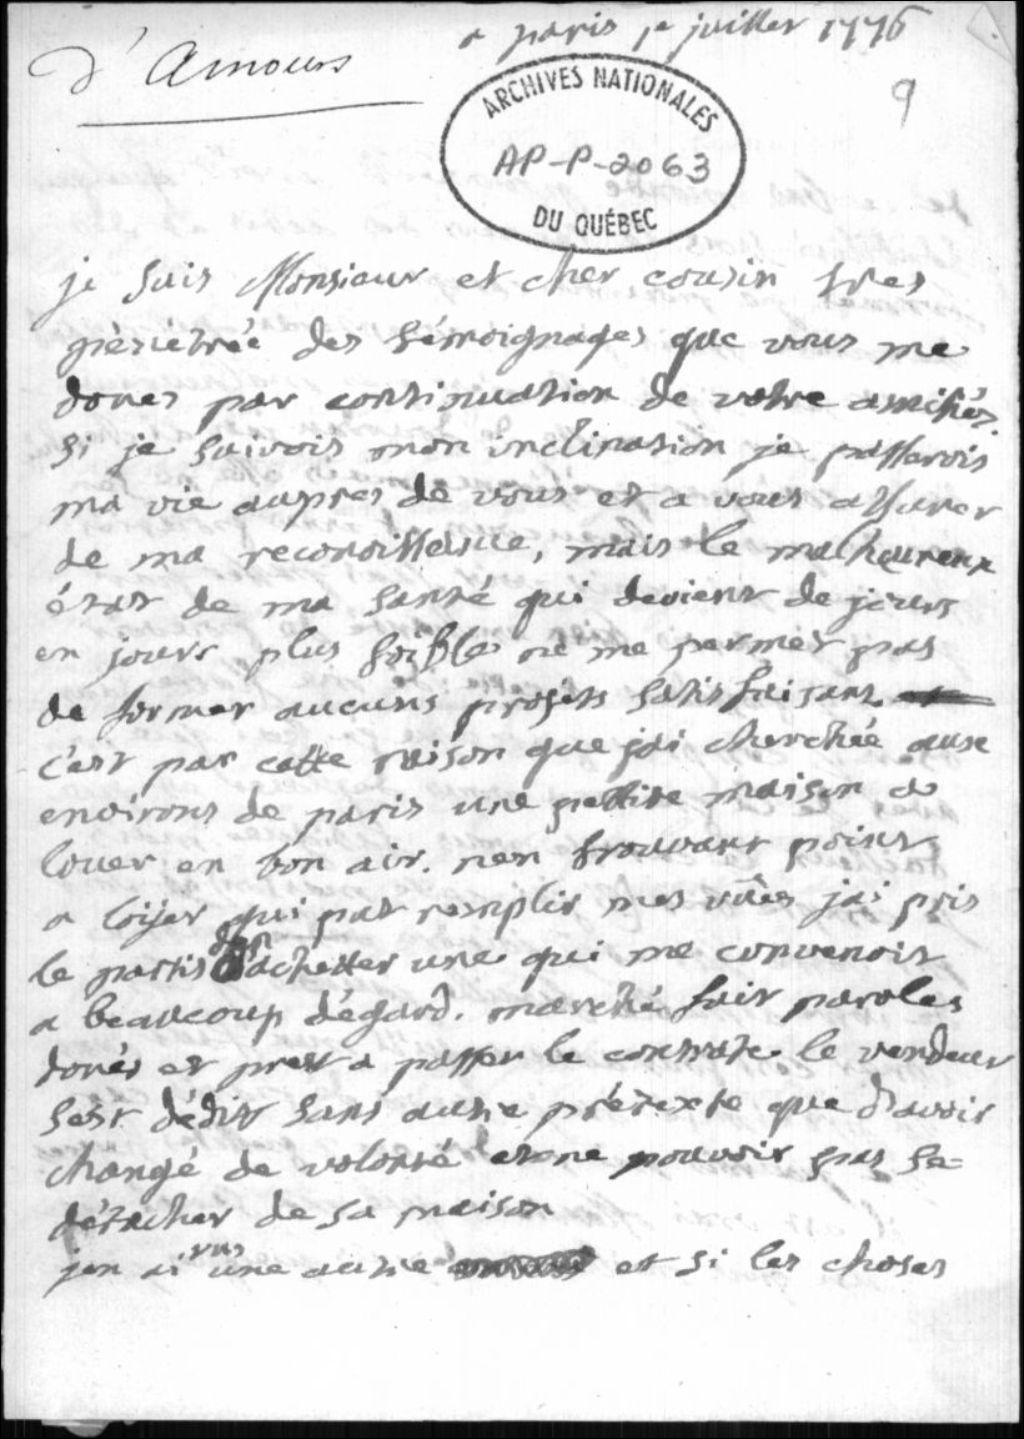 a paris 1e juillet 1776
d'Amours
9
ARCHIVES NATIONALES
AP-P-2063
DU QUÉBEC
je suis Monsieur et cher cousin tres
pénétrée des témoignages que vous me
donés par continuation de votre amitiés.
si je suivois mon inclination je passerois
ma vie aupres de vous et a vous assurer
de ma reconoissance, mais le malheureux
état de ma santé qui devient de jours
en jours plus foible ne me permet pas
de former aucuns projets satisfaisant
c'est par cette raison que jai cherchée aux
environs de paris une pettite maison a
louer en bon air. nen trouvant point
a loÿer qui put remplir mes vûes jai pris
le partis den achetter une qui me convenoit
a beaucoup dégard. marché fait paroles
donés et prest a passer le contrate le vendeur
sest dédit sans autre prétexte que d'avoir
changé de volonté et ne pouvoir pas se
détacher de sa maison
jen ai vus une autre et si les choses